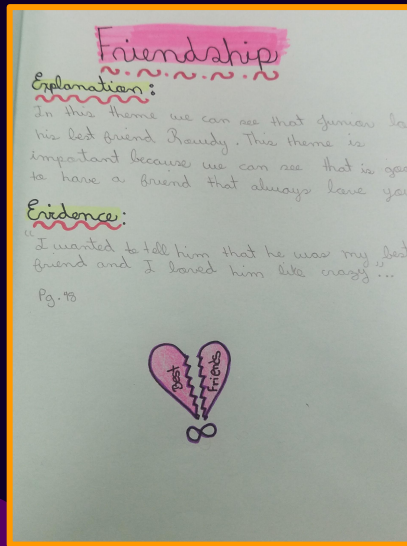 Friendship
Explanation:
In this theme we can see that Junior lo
his best friend Rowdy. This theme is
important because we can see that is goo
to have a friend that always love you
Evidence:
"I wanted to tell him that he was my best
friend and I loved him like crazy"...
Pg. 48
Best
Friends